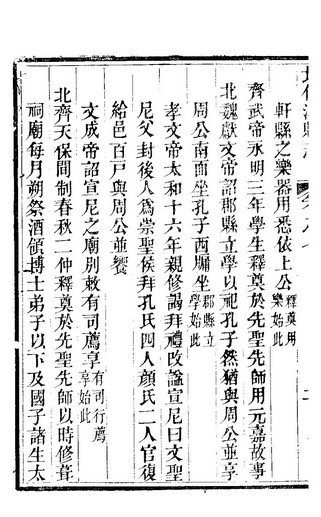 軒縣之樂器用悉依上公釋奠用樂始此
齊武帝永明三年學生釋奠於先聖先師用元嘉故事
北魏獻文帝詔郡縣立學以祀孔子然猶與周公並享
周公南面坐孔子西牖坐郡縣立學始此
孝文帝太和十六年親修謁拜禮改諡宣尼曰文聖
尼父封後人爲崇聖侯拜孔氏四人顏氏二人官復
給邑百戸與周公並饗
文成帝詔宣尼之廟別敕有司薦享有司行薦享始此
北齊天保間制春秋二仲釋奠於先聖先師以時修葺
祠廟每月朔祭酒領博士弟子以下及國子諸生太